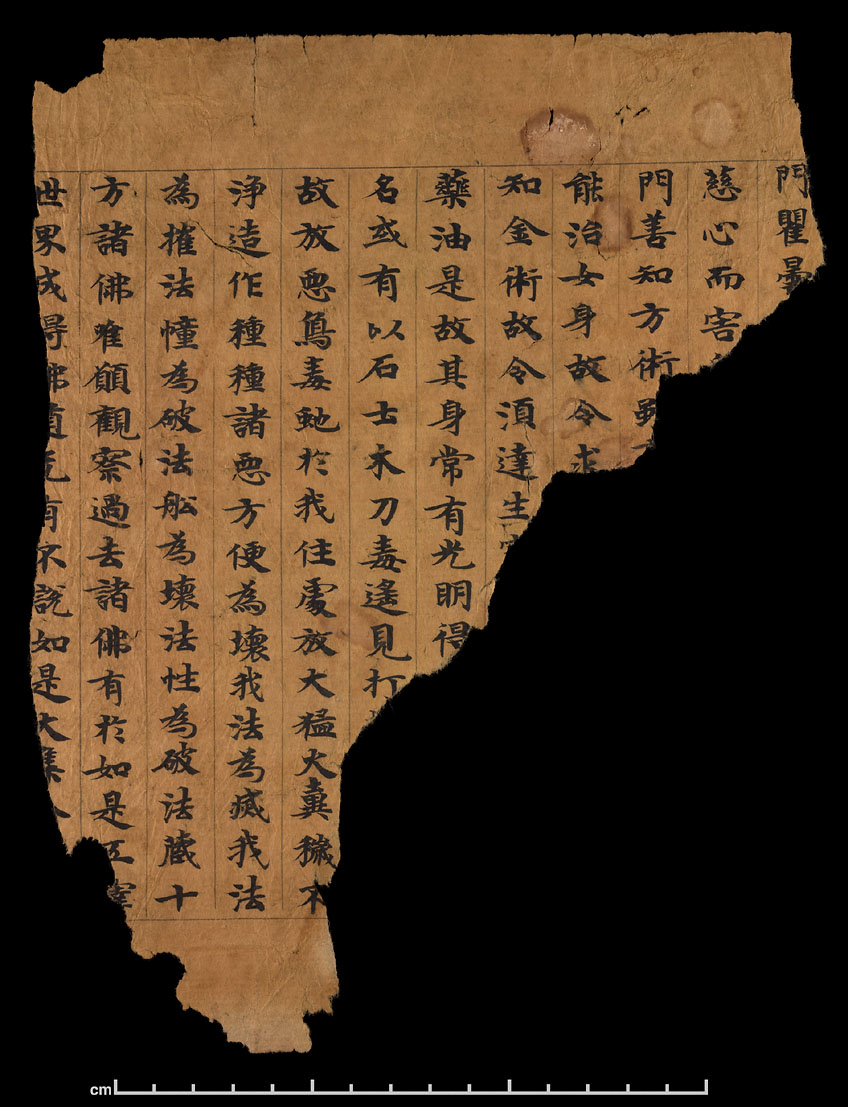 門瞿曇
慈心而害
門善知方術
能治女身故令求
知金術故令湏達生
藥油是故其身常有光明得
名或有以石士木刀毒遙見打
故放惡鳥毒虵於我住處放大猛火糞穢不
浄造作種種諸惡方便為壞我法為滅我法
為摧法幢為破法舩為壞法性為破法藏十
方諸佛唯願觀察過去諸佛有於如是五
世界成得佛有不說如是大集